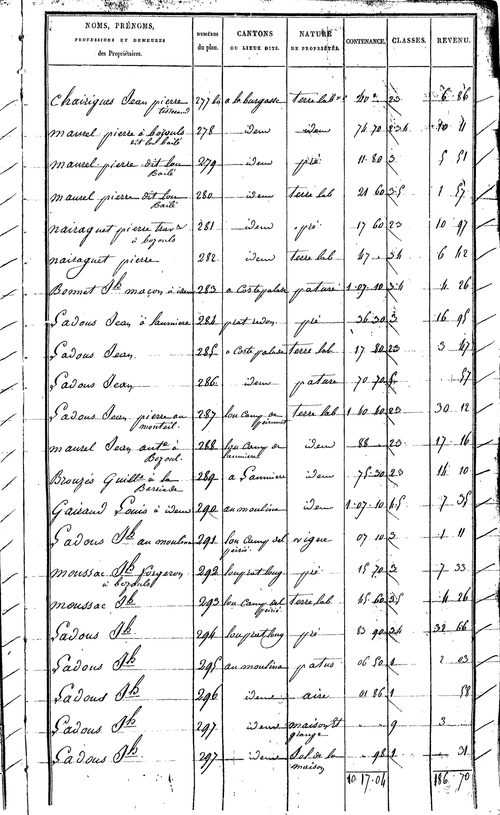 NOMS, PRÉNOMS, PROFESSIONS ET DEMEURES des Propriétaires. NUMÉROS du plan. CANTONS OU LIEUX DITS. NATURE DE PROPRIÉTÉS. CONTENANCE. CLASSES. REVENU.
Chairigues Jean pierre 277 a la burgasse terre lab 40 23 6 86
maurel pierre à bozouls 278 idem idem 74 70 234 10 11
maurel pierre dit lou Bailé 279 idem pré 11 80 3 5 51
maurel pierre dit lou Bailé 280 idem terre lab 21 60 35 1 57
nairaguet pierre à bozouls 281 idem pré 17 60 23 10 97
nairaguet pierre 282 idem terre lab 47 34 6 42
Bonnet Jh maçon à idem 283 a Costepalase pature 1 07 10 34 4 26
Ladous Jean à launiere 284 prat redon pré 36 30 3 16 95
Ladous Jean 285 a Costepalase terre lab 17 80 23 3 47
Ladous Jean 286 idem pature 70 70 5 57
Ladous Jean pierre au monteil 287 lou Camp de terre lab 1 60 80 23 30 12
maurel Jean ant à Bozoul 288 lou Camp de idem 88 23 17 16
Brouzés Guill à la Barriade 289 a Launiere idem 75 30 23 14 10
Gairaud Louis à idem 290 au moulina idem 1 07 10 45 7 35
Ladous Jh au moulina 291 lou Camp del vigne 07 10 3 1 11
moussac Jh forgeron à bozouls 292 lou prat loug pré 15 70 3 7 33
moussac Jh 293 lou Camp del terre lab 45 60 35 4 26
Ladous Jh 294 lou prat loug pré 83 90 34 32 66
Ladous Jh 295 au moulina patus 06 50 1 2 03
Ladous Jh 296 idem aire 01 86 1 58
Ladous Jh 297 idem maison et grange 9 3
Ladous Jh 297 idem Sol de la maison 98 1 31
10 17 04 186 70